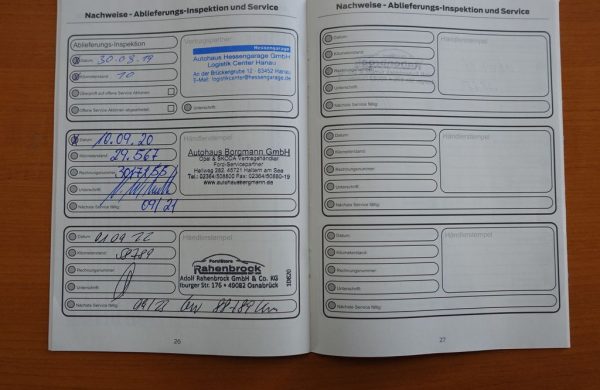 Nachweise - Ablieferungs-Inspektion und Service
Ablieferungs-Inspektion
Vertragspartner
Datum 30.08.19
Kilometerstand 10
Überprüft auf offene Service Aktionen
Offene Service Aktionen abgearbeitet
Hessengarage
Autohaus Hessengarage GmbH
Logistik Center Hanau
An der Brückengrube 12 · 63452 Hanau
E-Mail: logistikcenter@hessengarage.de
Unterschrift
Datum 10.09.20
Kilometerstand 29.567
Rechnungsnummer
Unterschrift
Nächste Service fällig 09/21
Händlerstempel
Autohaus Borgmann GmbH
Opel & SKODA Vertragshändler
Ford-Servicepartner
45721 Haltern am See
Tel.: 02364/508800 Fax: 02364/50880-19
www.autohausborgmann.de
Datum 01 09 22
Kilometerstand 58789
Rechnungsnummer
Unterschrift
Nächste Service fällig 09/23 88789 km
Händlerstempel
FordStore
Rahenbrock
Adolf Rahenbrock GmbH & Co. KG
burger Str. 176 • 49082 Osnabrück
26
Nachweise - Ablieferungs-Inspektion und Service
Datum
Kilometerstand
Rechnungsnummer
Unterschrift
Nächste Service fällig
Händlerstempel
Datum
Kilometerstand
Rechnungsnummer
Unterschrift
Nächste Service fällig
Händlerstempel
Datum
Kilometerstand
Rechnungsnummer
Unterschrift
Nächste Service fällig
Händlerstempel
27